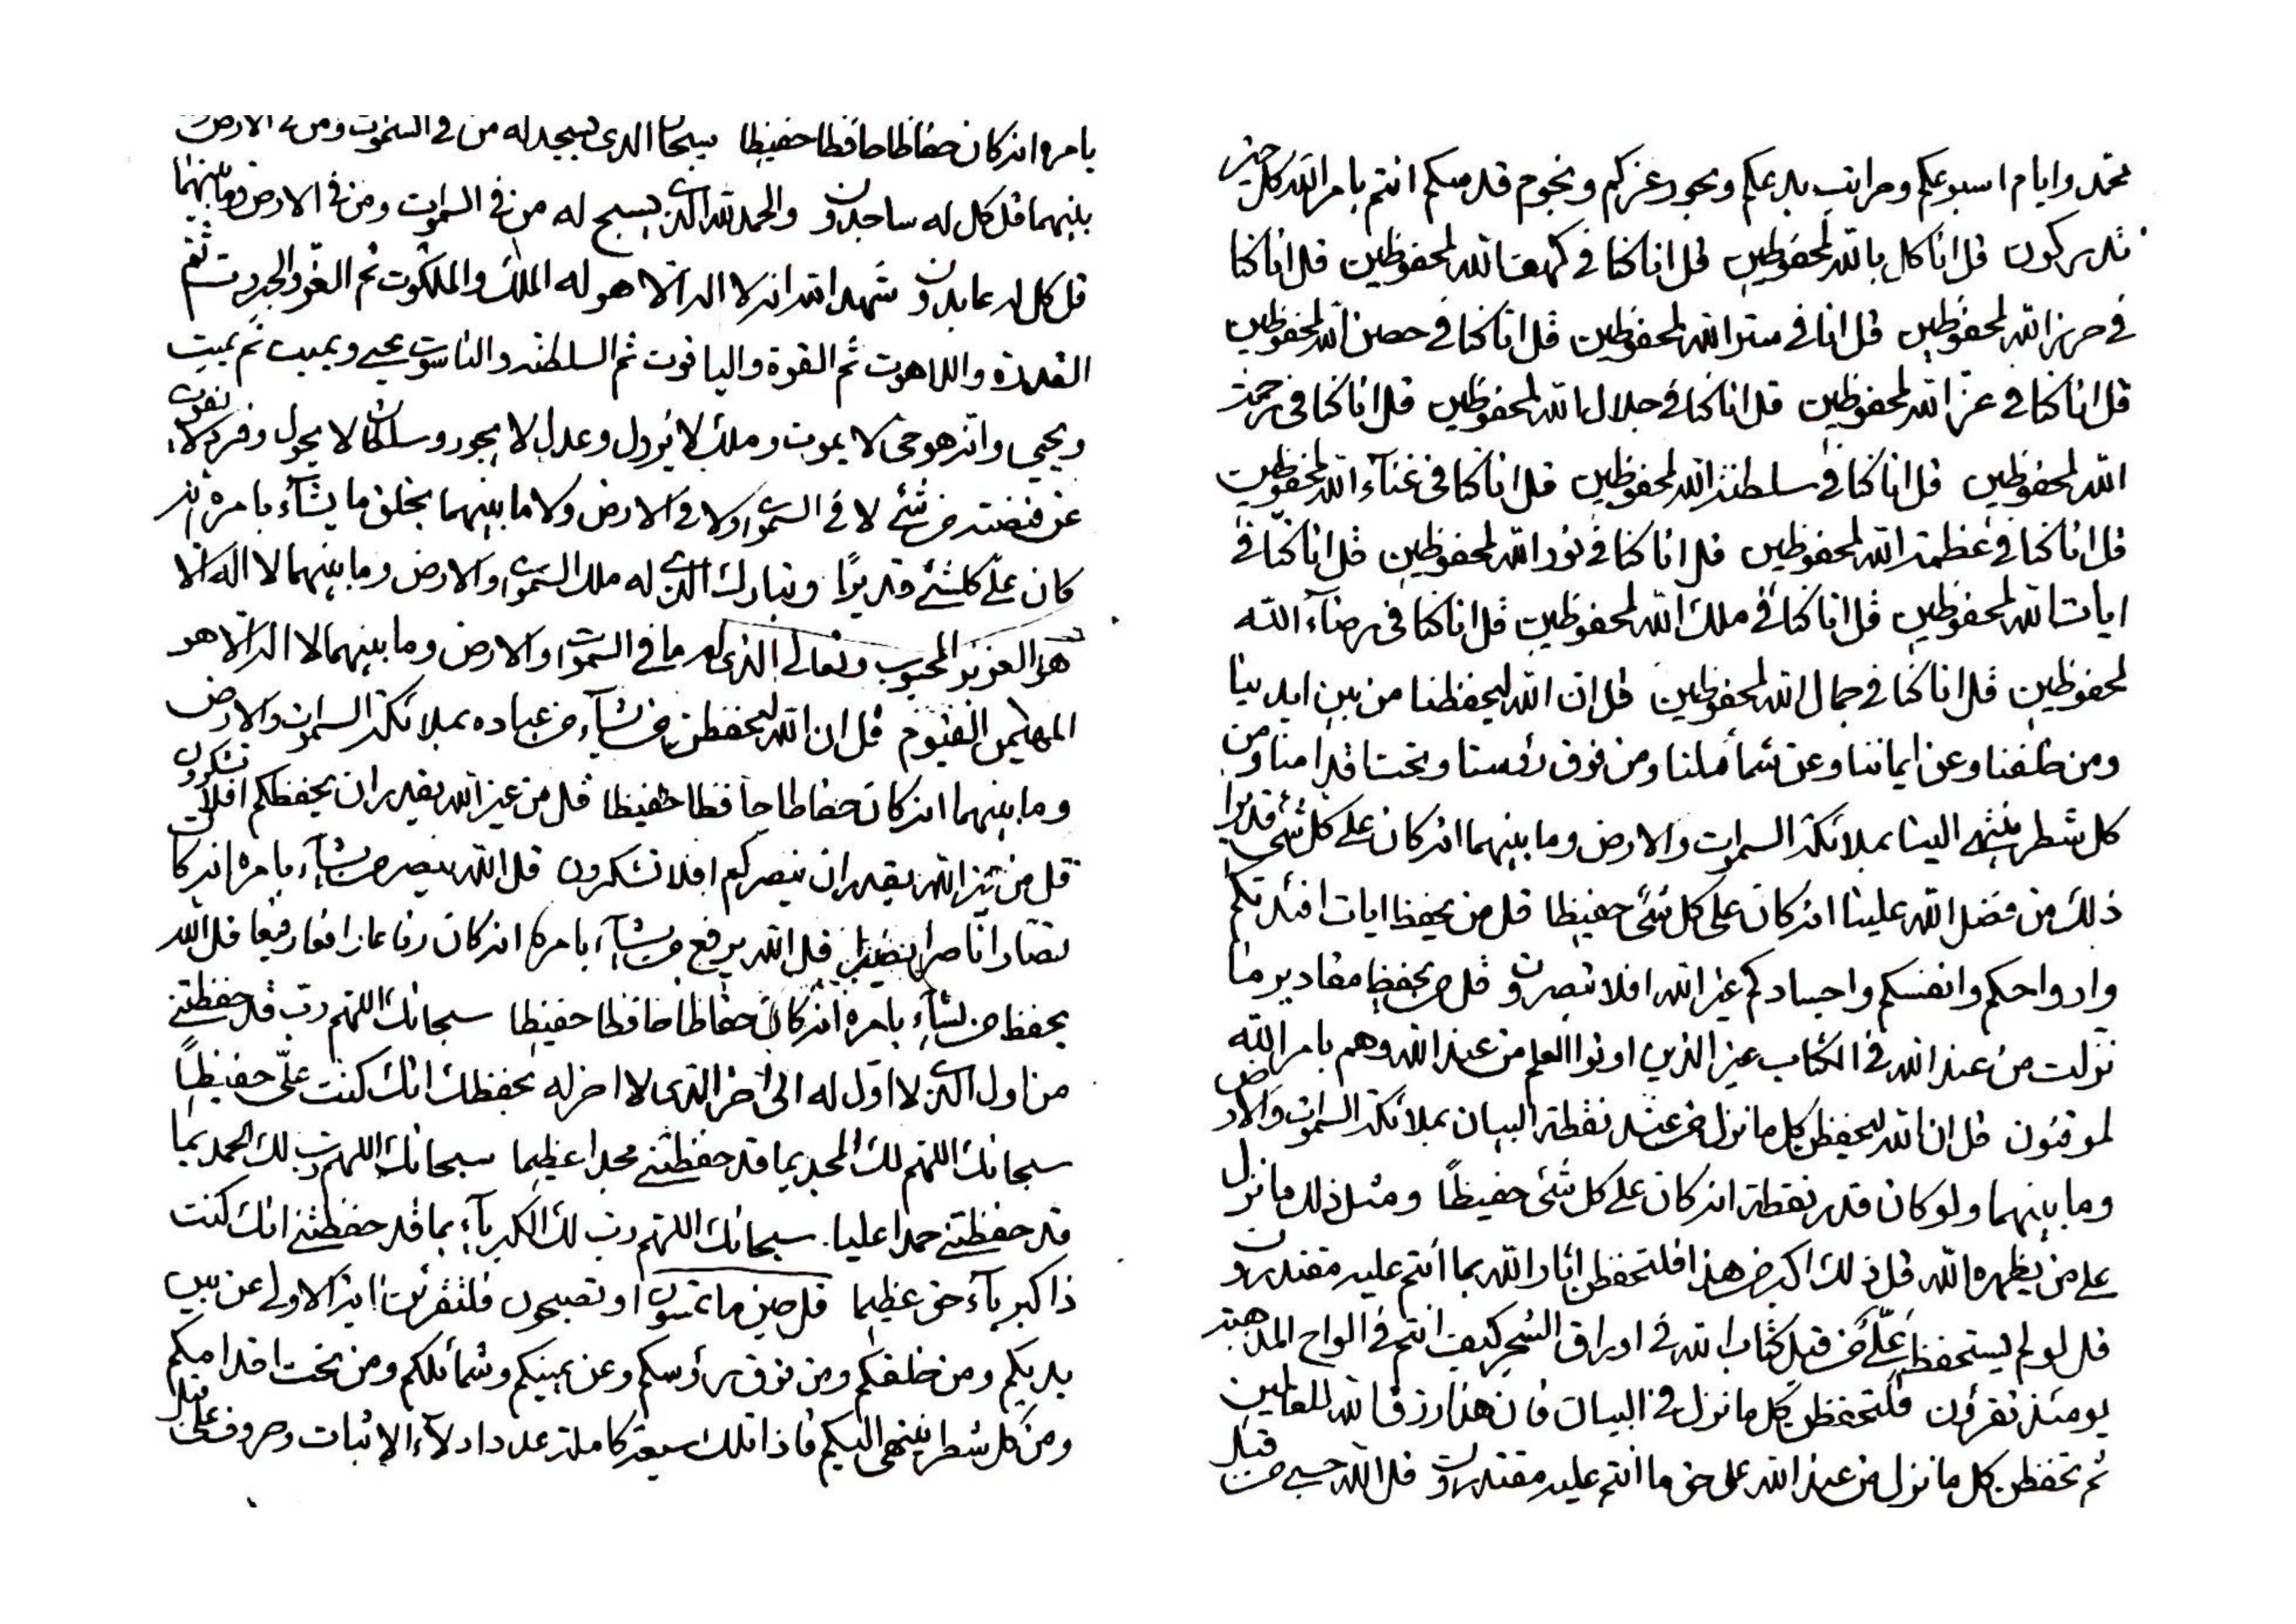 محمد وايام اسبوعكم ومراتب بدعكم وبحور عزكم ونجوم قدسكم انتم بامر الله كل حين
تدركون قل انا كل بالله لمحفوظين قل انا كنا في كهف الله لمحفوظين قل انا كنا
في حرز الله لمحفوظين قل انا في ستر الله لمحفوظين قل انا كنا في حصن الله لمحفوظين
قل انا كنا في عز الله لمحفوظين قل انا كنا في جلال الله لمحفوظين قل انا كنا في رحمة
الله لمحفوظين قل انا كنا في سلطنة الله لمحفوظين قل انا كنا في غنآء الله لمحفوظين
قل انا كنا في عظمة الله لمحفوظين قل انا كنا في نور الله لمحفوظين قل انا كنا في
ايات الله لمحفوظين قل انا كنا في ملك الله لمحفوظين قل انا كنا في رضآء الله
لمحفوظين قل انا كنا في جمال الله لمحفوظين قل ان الله ليحفظنا من بين ايدينا
ومن خلفنا وعن ايماننا وعن شمآئلنا ومن فوق رؤسنا وتحت اقدامنا ومن
كل شطر ينتهي الينا بملائكة السموات والارض وما بينهما انه كان على كل شئ قديرا
ذلك من فضل الله علينا انه كان على كل شئ حفيظا قل من يحفظ ايات افئدتكم
وارواحكم وانفسكم واجسادكم غير الله افلا تبصرون قل من يحفظ مقادير ما
نزلت من عند الله في الكتاب غير الذين اوتوا العلم من عند الله وهم بامر الله
لموقنون قل ان الله ليحفظن كل ما نزل من عند نقطة البيان بملائكة السموات والارض
وما بينهما ولو كان قدر نقطة انه كان على كل شئ حفيظاً ومثل ذلك ما نزل
على من يظهره الله قل ذلك اكبر من هذا فلتحفظن اثار الله بما انتم عليه مقتدرون
قل لو لم يستحفظ عليّ من قبل كتاب الله في اوراق الشجر كيف انتم في الواح المذهبة
يومئذ تقرئون فلتحفظن كل ما نزل في البيان فان هذا رزق الله للعالمين
ثم تحفظن كل ما نزل من عند الله على حق ما انتم عليه مقتدرون قل الله حسبي من قبل
بامره انه كان حفاظا حافظا حفيظا سبحان الذي يسجد له من في السموات ومن في الارض وما
بينهما قل كل له ساجدون والحمد لله الذي يسبح له من في السموات ومن في الارض وما بينهما
قل كل له عابدون شهد الله انه لا اله الا هو له الملك والملكوت ثم العز والجبروت ثم
القدرة واللاهوت ثم القوة والياقوت ثم السلطنة والناسوت يحيي ويميت ثم يميت
ويحيي وانه هو حي لا يموت وملك لا يزول وعدل لا يجور وسلطان لا يحول وفرد لا يفوت
عن قبضته من شئ لا في السموات ولا في الارض ولا ما بينهما يخلق ما يشآء بامره انه
كان على كلشئ قديرًا وتبارك الذي له ملك السموات والارض وما بينهما لا اله الا
هو العزيز المحبوب وتعالى الذي له ما في السموات والارض وما بينهما لا اله الا هو
المهيمن القيوم قل ان الله ليحفظن من يشآء من عباده بملائكة السموات والارض
وما بينهما انه كان حفاظا حافظا حفيظا قل من غير الله يقدر ان يحفظكم افلا تشكرون
قل من غير الله يقدر ان ينصركم افلا تشكرون قل الله ينصر من يشآء بامره انه كان
نصارا ناصرا نصيرا قل الله يرفع من يشآء بامره انه كان رفاعا رافعا رفيعا قل الله
يحفظ من يشآء بامره انه كان حفاظا حافظا حفيظا سبحانك اللهم رب قد حفظتني
من اول الذي لا اول له الى اخر الذي لا اخر له بحفظك انك كنت عليّ حفيظاً
سبحانك اللهم لك المجد بما قد حفظتني مجدا عظيما سبحانك اللهم رب لك الحمد بما
قد حفظتني حمدا عليا سبحانك اللهم رب لك الكبريآء بما قد حفظتني انك كنت
ذا كبريآء حق عظيما قل حين ما تمسون او تصبحون فلتقرئن اية الاولى عن بين
يديكم ومن خلفكم ومن فوق رؤسكم وعن يمينكم وشمائلكم ومن تحت اقدامكم
ومن كل شطر ينتهي اليكم فاذا تلك سبعة كاملة عدد ادلآء الاثبات وحروف